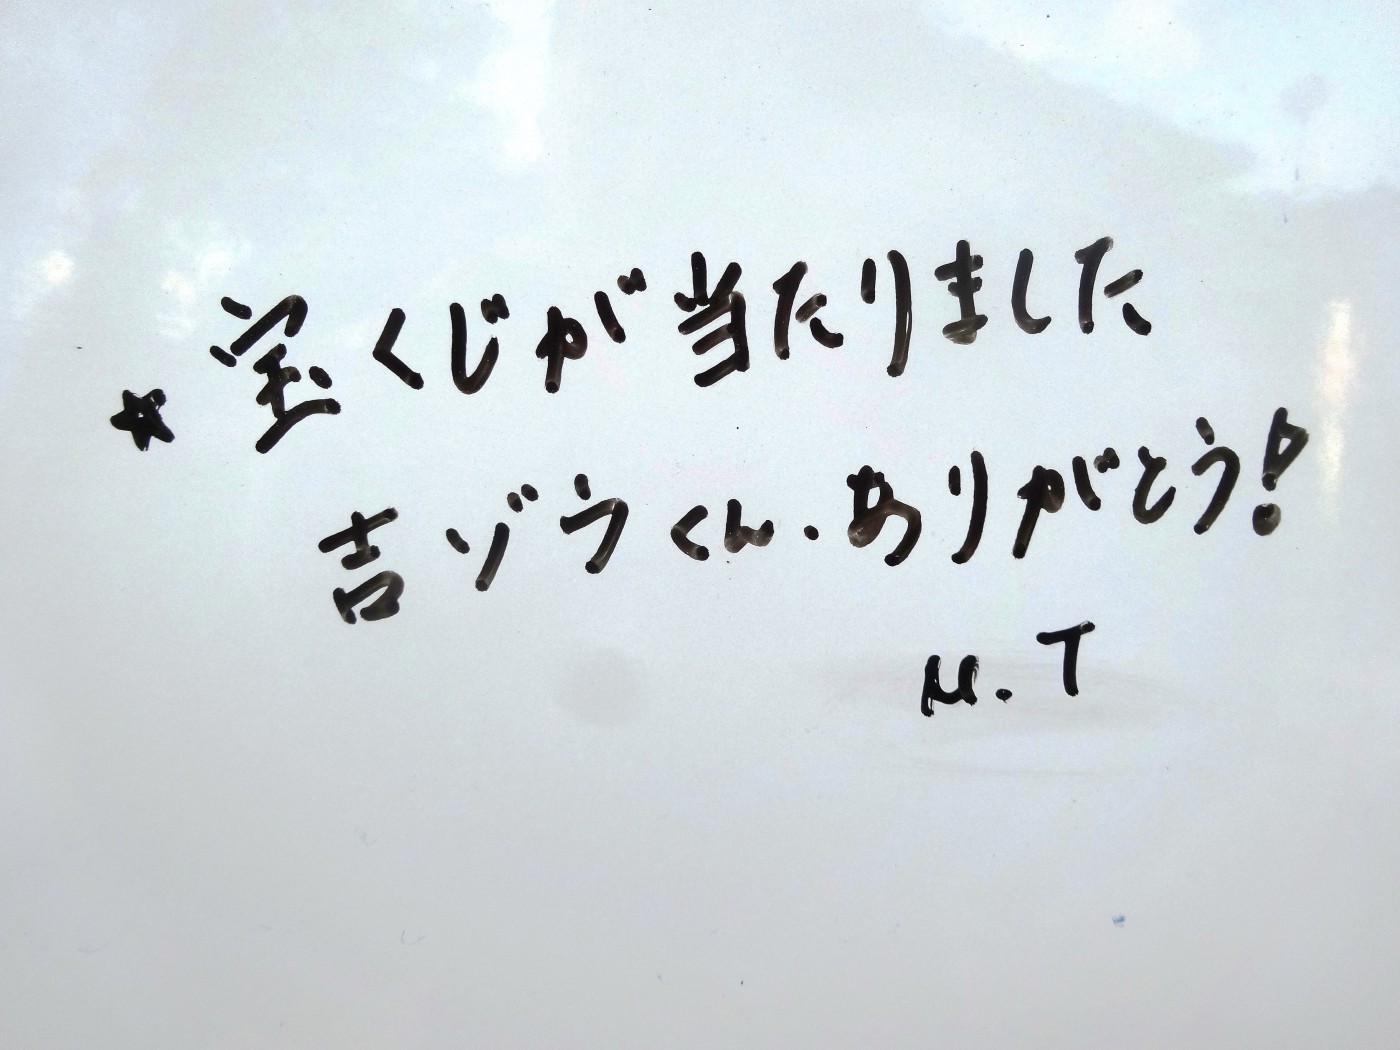 ★宝くじが当たりました
吉ゾウくん.ありがとう!
M.T